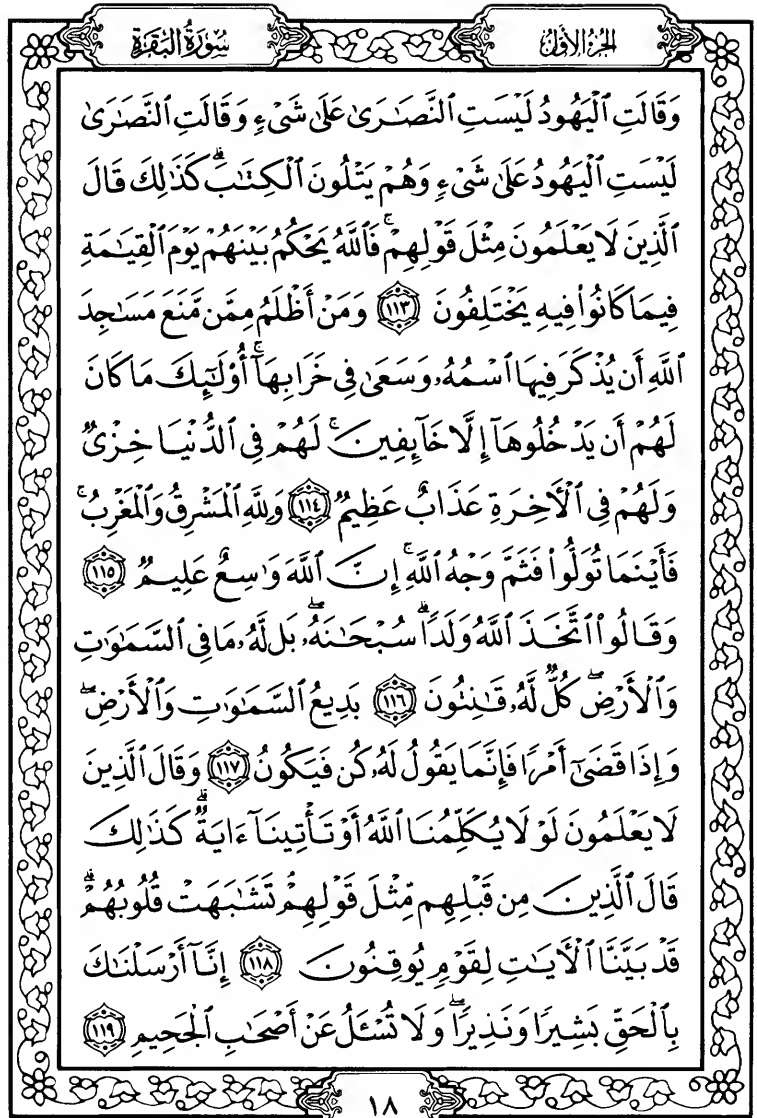 سُورَةُ الْبَقَرَةِ الجُزْءُ الأَوَّلُ
وَقَالَتِ ٱلْيَهُودُ لَيْسَتِ ٱلنَّصَـٰرَىٰ عَلَىٰ شَىْءٍ وَقَالَتِ ٱلنَّصَـٰرَىٰ
لَيْسَتِ ٱلْيَهُودُ عَلَىٰ شَىْءٍ وَهُمْ يَتْلُونَ ٱلْكِتَـٰبَ ۗ كَذَٰلِكَ قَالَ
ٱلَّذِينَ لَا يَعْلَمُونَ مِثْلَ قَوْلِهِمْ ۚ فَٱللَّهُ يَحْكُمُ بَيْنَهُمْ يَوْمَ ٱلْقِيَـٰمَةِ
فِيمَا كَانُوا۟ فِيهِ يَخْتَلِفُونَ ١١٣ وَمَنْ أَظْلَمُ مِمَّن مَّنَعَ مَسَـٰجِدَ
ٱللَّهِ أَن يُذْكَرَ فِيهَا ٱسْمُهُۥ وَسَعَىٰ فِى خَرَابِهَآ ۚ أُو۟لَـٰٓئِكَ مَا كَانَ
لَهُمْ أَن يَدْخُلُوهَآ إِلَّا خَآئِفِينَ ۚ لَهُمْ فِى ٱلدُّنْيَا خِزْىٌ
وَلَهُمْ فِى ٱلْأَخِرَةِ عَذَابٌ عَظِيمٌ ١١٤ وَلِلَّهِ ٱلْمَشْرِقُ وَٱلْمَغْرِبُ ۚ
فَأَيْنَمَا تُوَلُّوا۟ فَثَمَّ وَجْهُ ٱللَّهِ ۚ إِنَّ ٱللَّهَ وَٰسِعٌ عَلِيمٌ ١١٥
وَقَالُوا۟ ٱتَّخَذَ ٱللَّهُ وَلَدًا ۗ سُبْحَـٰنَهُۥ ۖ بَل لَّهُۥ مَا فِى ٱلسَّمَـٰوَٰتِ
وَٱلْأَرْضِ ۖ كُلٌّ لَّهُۥ قَـٰنِتُونَ ١١٦ بَدِيعُ ٱلسَّمَـٰوَٰتِ وَٱلْأَرْضِ ۖ
وَإِذَا قَضَىٰٓ أَمْرًا فَإِنَّمَا يَقُولُ لَهُۥ كُن فَيَكُونُ ١١٧ وَقَالَ ٱلَّذِينَ
لَا يَعْلَمُونَ لَوْلَا يُكَلِّمُنَا ٱللَّهُ أَوْ تَأْتِينَآ ءَايَةٌ ۗ كَذَٰلِكَ
قَالَ ٱلَّذِينَ مِن قَبْلِهِم مِّثْلَ قَوْلِهِمْ ۘ تَشَـٰبَهَتْ قُلُوبُهُمْ ۗ
قَدْ بَيَّنَّا ٱلْأَيَـٰتِ لِقَوْمٍ يُوقِنُونَ ١١٨ إِنَّآ أَرْسَلْنَـٰكَ
بِٱلْحَقِّ بَشِيرًا وَنَذِيرًا ۖ وَلَا تُسْـَٔلُ عَنْ أَصْحَـٰبِ ٱلْجَحِيمِ ١١٩
١٨